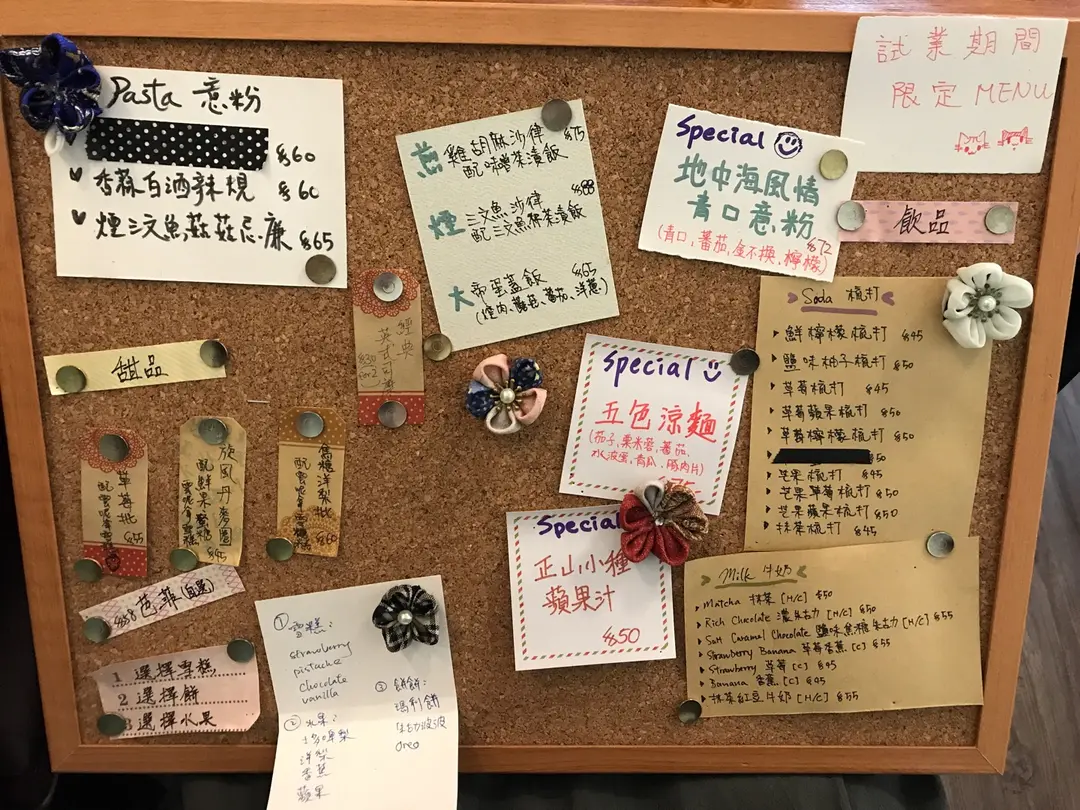 試業期間
限定 MENU
Pasta 意粉
$60
香蒜白酒辣蜆 $60
煙三文魚菇菇忌廉 $65
雞胡麻沙律 $75
配味噌茶漬飯
煙 三文魚沙律 $88
配三文魚茶漬飯
大 帝蛋蓋飯 $65
(煙肉, 蘑菇, 蕃茄, 洋蔥)
Special
地中海風情
青口意粉
$72
(青口, 蕃茄, 金不換, 檸檬)
飲品
Soda 梳打
鮮檸檬梳打 $45
鹽味柚子梳打 $50
草莓梳打 $45
草莓蘋果梳打 $50
草莓檸檬梳打 $50
$50
芒果梳打 $45
芒果草莓梳打 $50
芒果蘋果梳打 $50
抹茶梳打 $45
經典
英式司康
Special
五色涼麵
(茄子, 粟米蓉, 蕃茄,
水波蛋, 青瓜, 豚肉片)
甜品
草莓批
配雲呢拿雪糕 $55
旋風丹麥圈
配鮮果蜜糖
雲呢拿雪糕 $45
焦糖洋梨批
配雲呢拿雪糕 $60
$88 芭菲 (自選)
1 選擇雪糕
2 選擇餅
3 選擇水果
① 雪糕:
strawberry
pistache
chocolate
vanilla
② 水果:
士多啤梨
洋梨
香蕉
蘋果
③ 餅餅:
瑪利餅
oreo
Special
正山小種
蘋果汁
$50
Milk 牛奶
Matcha 抹茶 [H/C] $50
Rich Chocolate 濃朱古力 [H/C] $50
Salt Caramel Chocolate 鹽味焦糖朱古力 [H/C] $55
Strawberry Banana 草莓香蕉 [C] $55
Strawberry 草莓 [C] $45
Banana 香蕉 [C] $45
抹茶紅豆牛奶 [H/C] $55